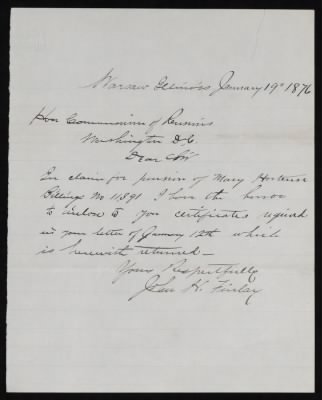 Warsaw Illinois January 19th 1876
Hon Commissioner of Pensions
Washington D.C.
Dear Sir
In claim for pension of Mary Hortense
Billings No 11,391 I have the honor
to inclose to you certificates required
in your letter of January 12th which
is herewith returned—
Yours Respectfully
John H. Finlay